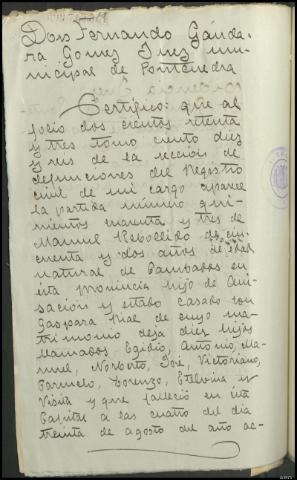 Don Fernando Gánda-
ra Gomez Juez mu-
nicipal de Pontevedra
Certifico: que al
folio dos cientos setenta
y tres tomo ciento diez
y seis de la sección de
defunciones del Registro
civil de mi cargo aparece
la partida número qui-
nientos y tres de
Manuel Rebollido de cin-
cuenta y dos años de edad
natural de Cambados en
esta provincia hijo de
y estado casado con
Gaspara Vial de cuyo ma-
trimonio deja diez hijos
llamados Egidio, Antonio, Ma-
nuel, Norberto, José, Victoriano,
Carmelo, Lorenzo, Etelvina y
Visita y que falleció en esta
Capital a las cuatro del día
treinta de agosto del año ac-